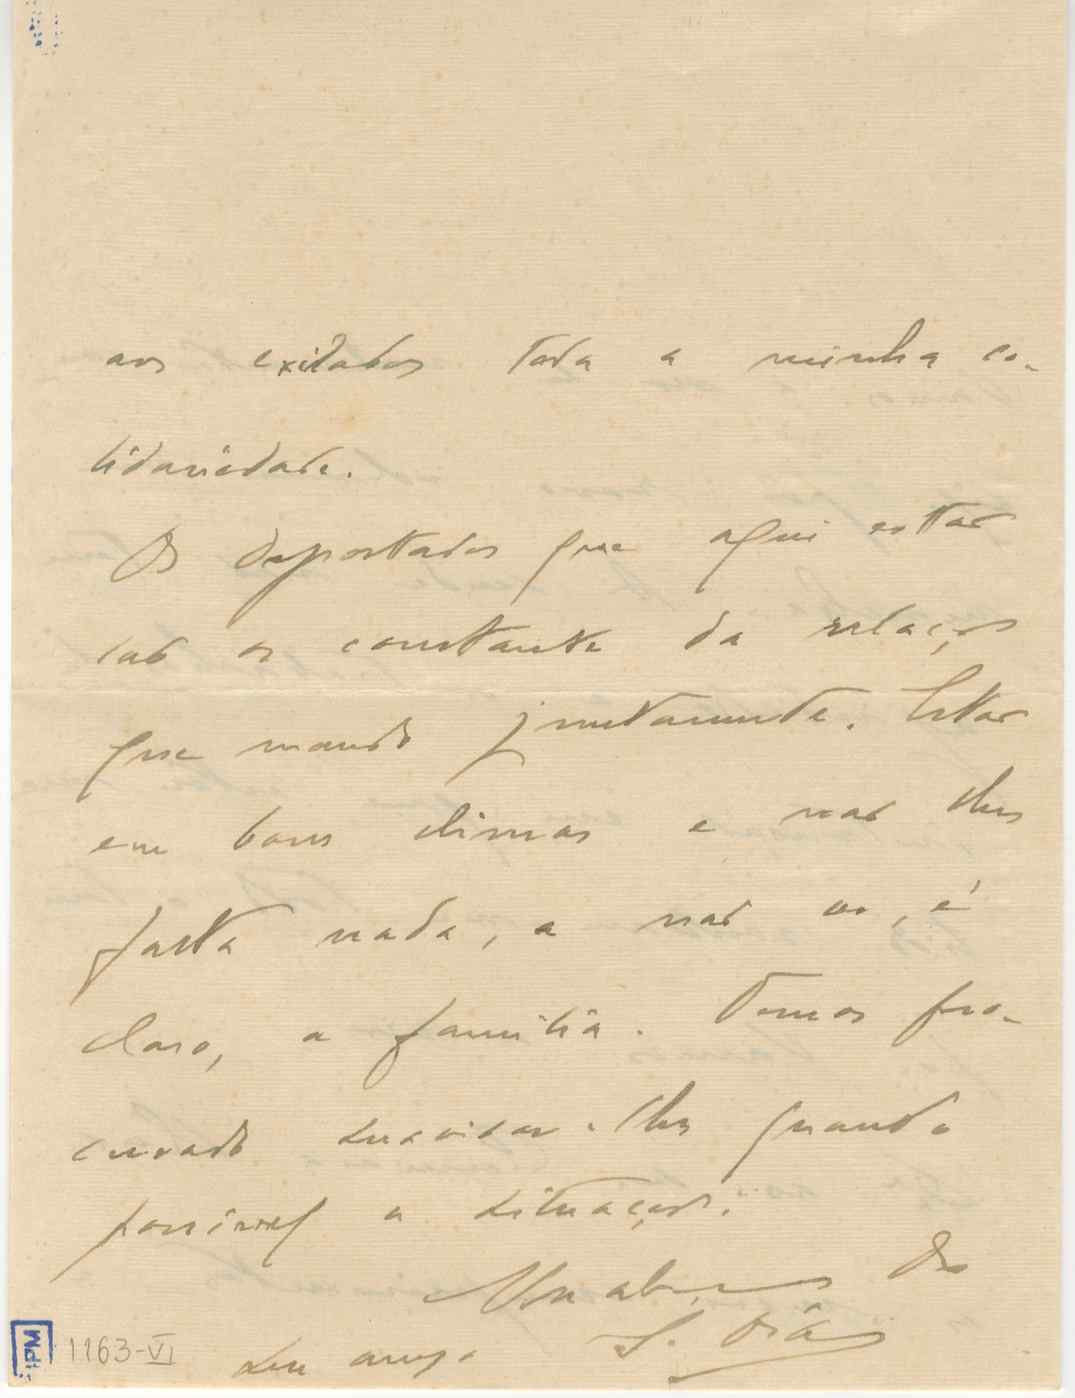 aos exilados toda a minha so-
lidariedade.
Os deportados que aqui estão
são os constante da relação
que mando juntamente. Estão
em bons climas e não lhes
falta nada, a não ser, é
claro, a familia. Temos pro-
curado suavisar-lhes quanto
possivel a situação.
Um abraço do
seu amigo S. Dias
PM 1163-VI